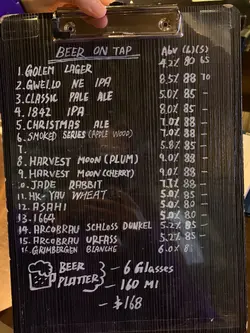 BEER ON TAP ABV (L) (S)
1. GOLEM LAGER 4.2% 80 65
2. GWEI.LO NE IPA 8.5% 88 70
3. CLASSIC PALE ALE 5.0% 85 -
4. 1842 IPA 8.0% 85 -
5. CHRISTMAS ALE 7.0% 88 -
6. SMOKED SERIES (APPLE WOOD) 7.0% 88 -
7.
8. HARVEST MOON (PLUM) 5.0% 85 -
9. HARVEST MOON (CHERRY) 85 -
0. JADE RABBIT 85 -
11. HK-YAU WHEAT 5.0% 85 -
12. ASAHI 5.0% 80 -
13. 1664 5.0% 80 -
14. ARCOBRAU SCHLOSS DUNKEL 5.2% 85 -
15. ARCOBRAU URFASS 5.2% 85 -
GRIMBERGEN BLANCHE 6.0% 85
BEER PLATTERS
- 6 Glasses
- 160 Ml
- $168